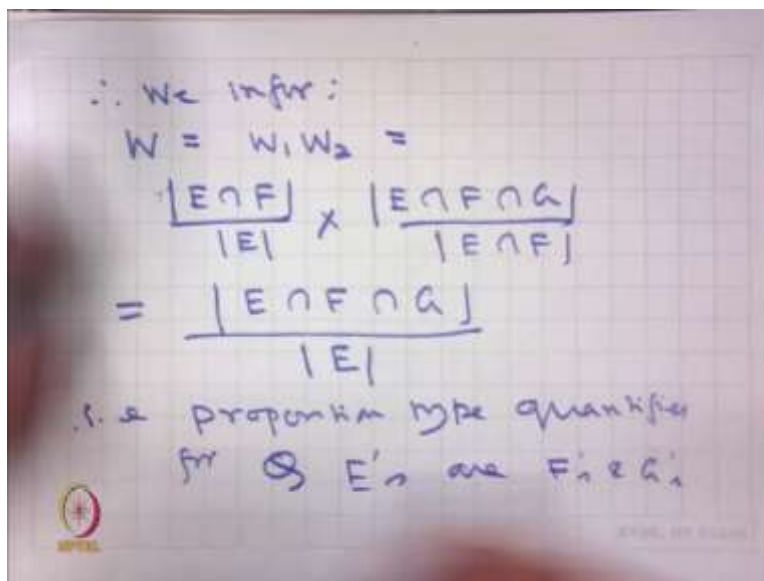 ∴ We infer:
W = W₁ W₂ =
|E ∩ F| / |E| × |E ∩ F ∩ G| / |E ∩ F|
= |E ∩ F ∩ G| / |E|
i.e proportion type quantifier
for Q E's are F's & G's
NPTEL